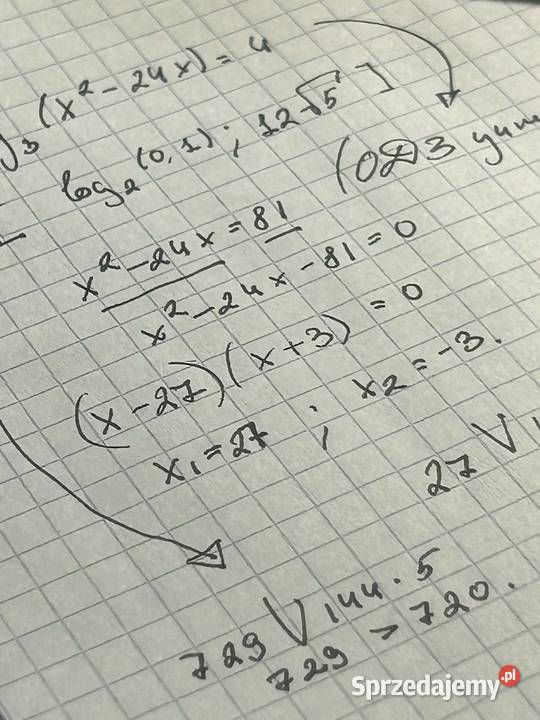 3 (x² - 24x) = 4
log₂(0,1) ; 12√5 ]
(ОДЗ
x² - 24x = 81
x² - 24x - 81 = 0
(x - 27)(x + 3) = 0
x₁ = 27 ; x₂ = -3.
27 V
729 V 144 · 5
729 > 720.
Sprzedajemy.pl